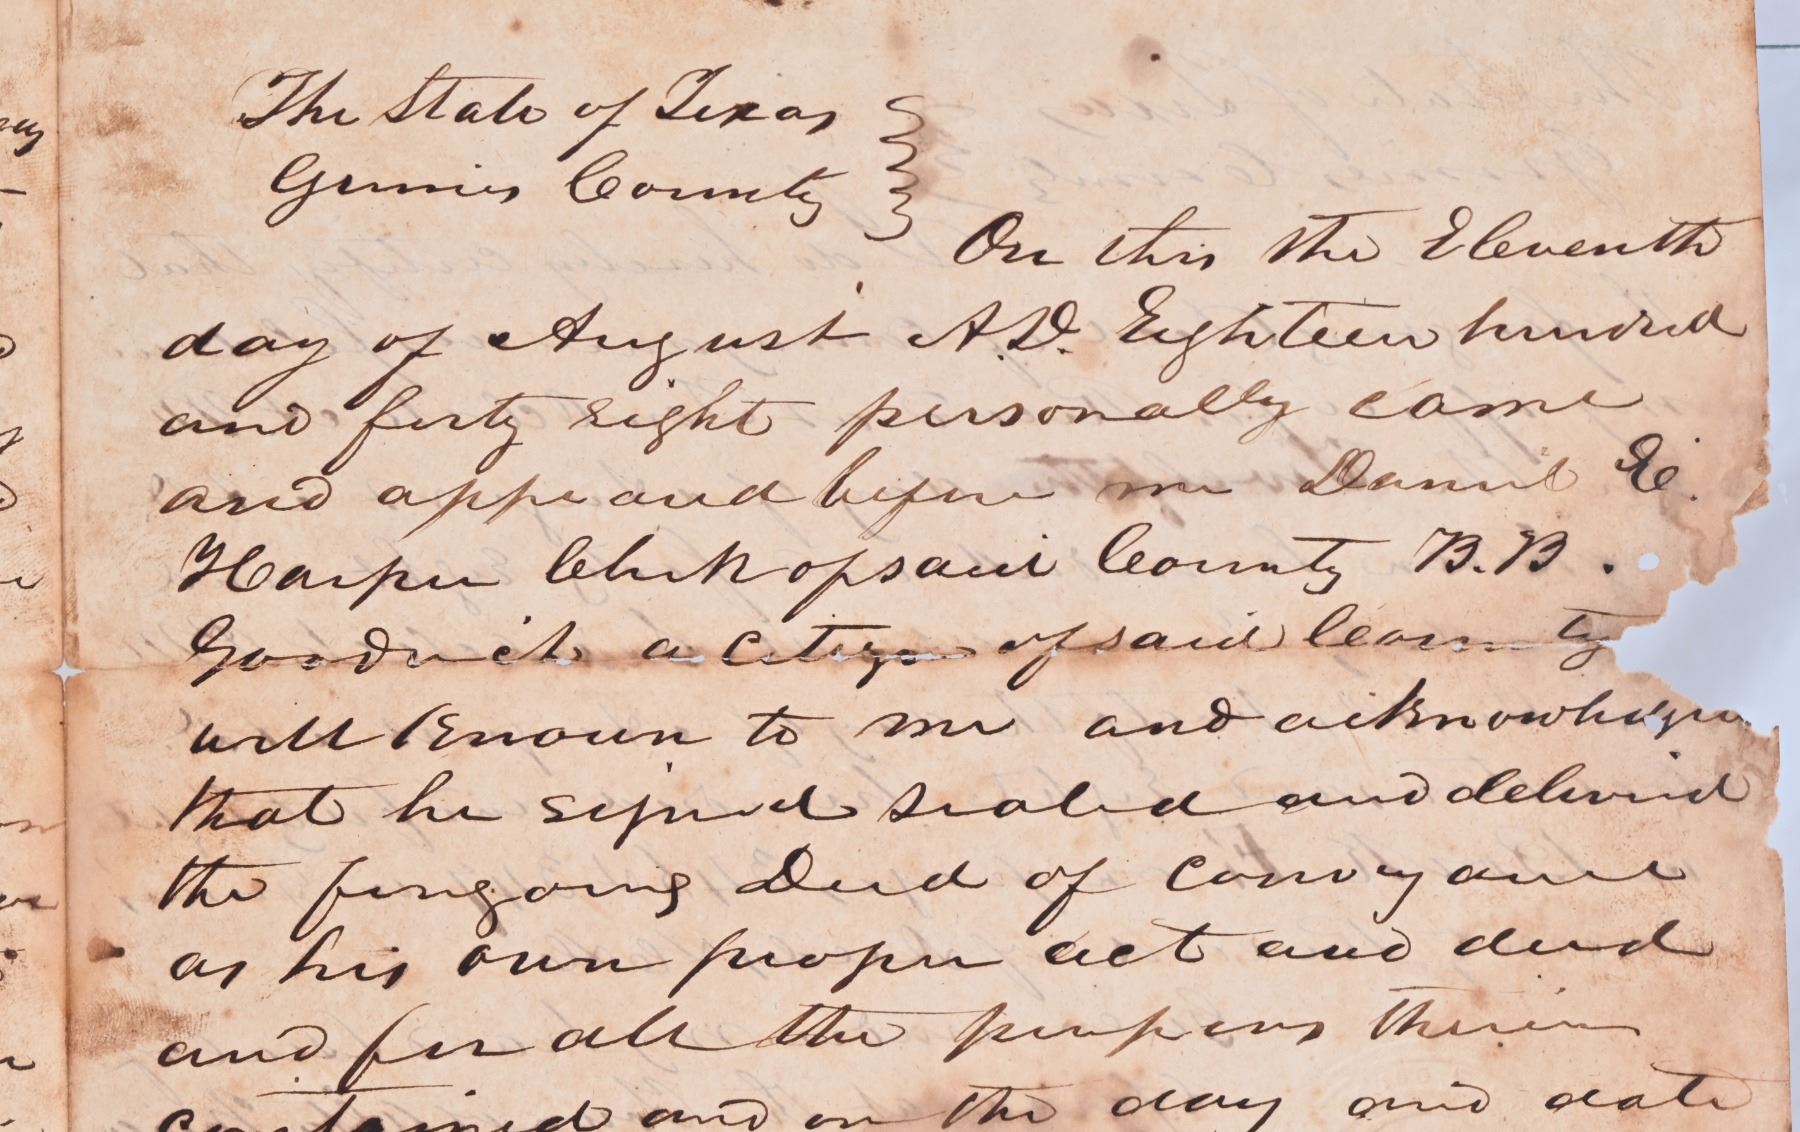 The State of Texas
Grimes County
On this the Eleventh
day of August A.D. Eighteen hundred
and forty eight personally came
and appeared before me Daniel E.
Harper Clerk of said County B.B.
Goodrich a Citizen of said County
well known to me and acknowledged
that he signed sealed and delivered
the foregoing Deed of Conveyance
as his own proper act and deed
and for all the purposes therein
contained and on the day and date